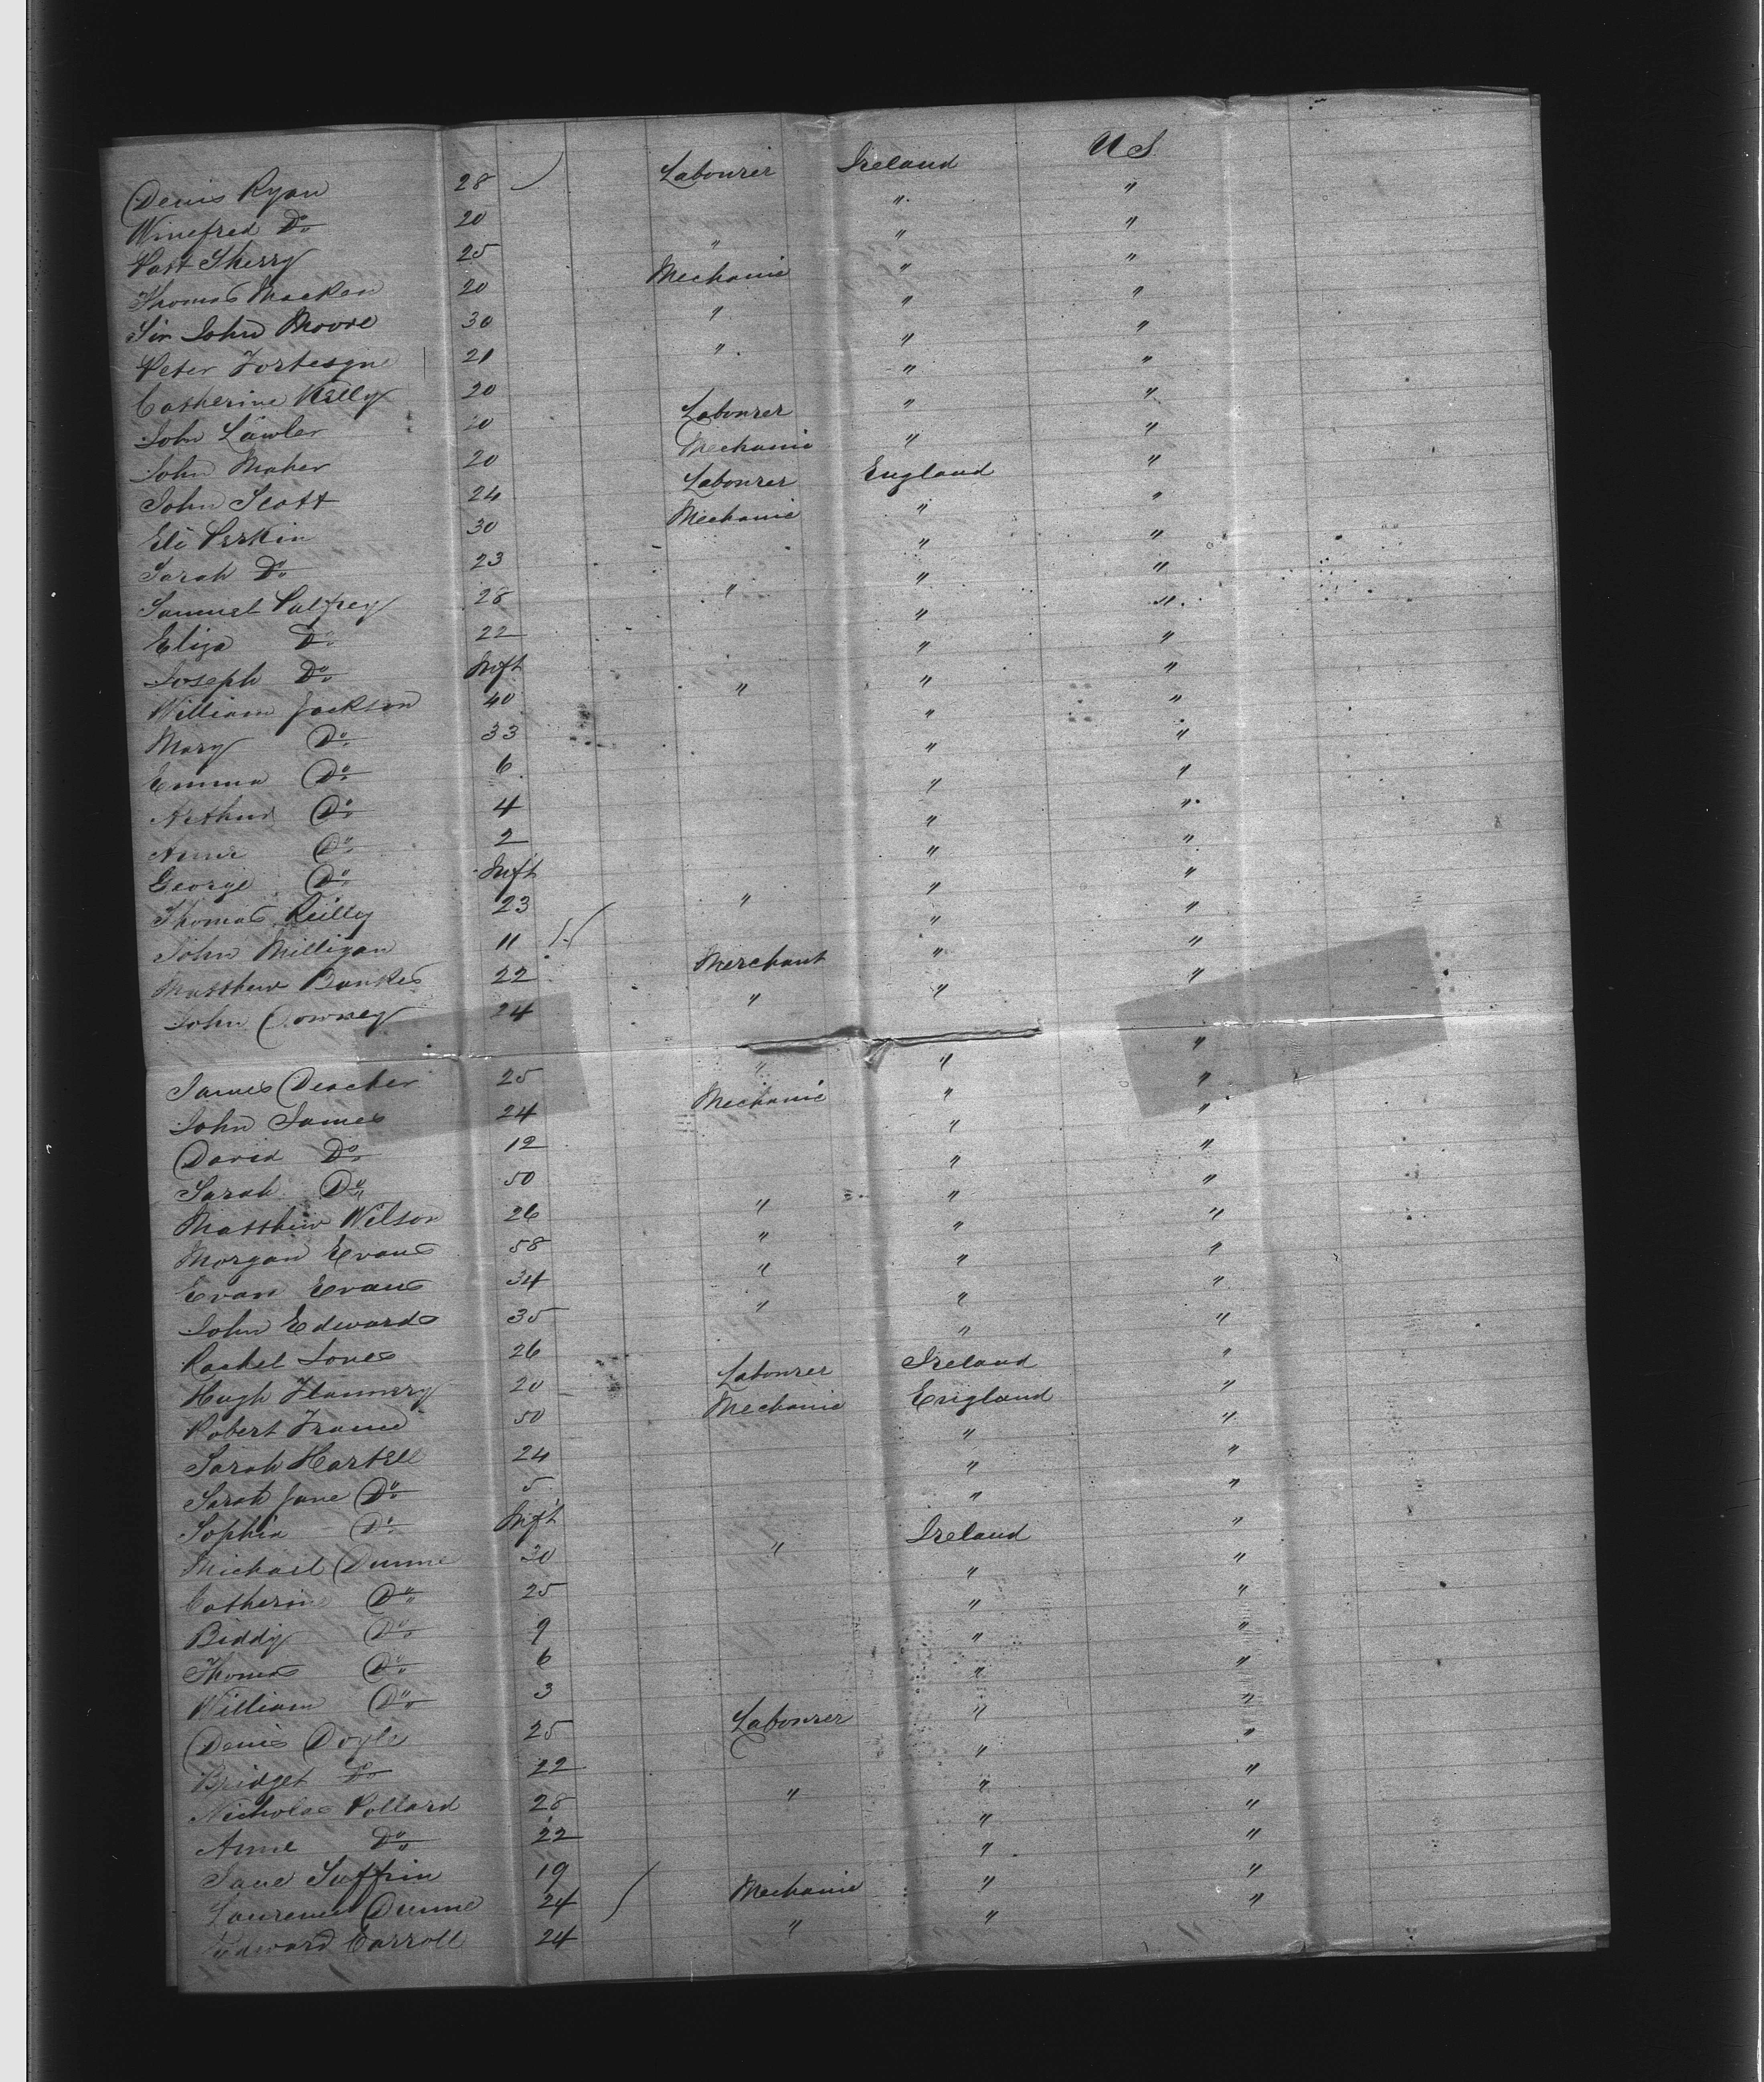 Denis Ryan 28 Labourer Ireland U S
Winefred Do 20 " "
Patt Sherry 25 " " "
Thomas Macken 20 Mechanic " "
Sir John Moore 30 " " "
Peter Fortesque 21 " " "
Catherine Kelly 20 " "
John Lawler 20 Labourer " "
John Maher 20 Mechanic " "
John Scott 24 Labourer England "
Eli Perkin 30 Mechanic " "
Sarah Do 23 " "
Samuel Palfrey 28 " " "
Eliza Do 22 " "
Joseph Do Inft " "
William Jackson 40 " " "
Mary Do 33 " "
Emma Do 6 " "
Arthur Do 4 " "
Anne Do 2 " "
George Do Inft " "
Thomas Reilly 23 " " "
John Milligan 11 " "
Matthew Bankes 22 Merchant " "
John Downey 24 " " "
James Deacher 25 " " "
John James 24 Mechanic " "
David Do 12 " "
Sarah Do 50 " "
Matthew Wilson 26 " " "
Morgan Evans 58 " " "
Evan Evans 34 " " "
John Edwards 35 " " "
Rachel Jones 26 " "
Hugh Flannery 20 Labourer Ireland "
Robert Frame 50 Mechanic England "
Sarah Hartell 24 " "
Sarah Jane Do 5 " "
Sophia Do Inft " "
Michael Dunne 30 " Ireland "
Catherine Do 25 " "
Biddy Do 9 " "
Thomas Do 6 " "
William Do 3 " "
Denis Doyle 25 Labourer " "
Bridget Do 22 " "
Nicholas Pollard 28 " " "
Anne Do 22 " "
Jane Suffrin 19 " "
Laurence Dunne 24 Mechanic " "
Edward Carroll 24 " " "